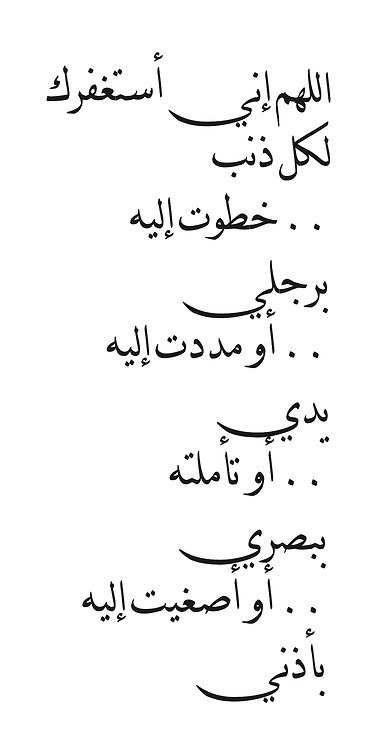 اللهم إني أستغفرك
لكل ذنب
. . خطوت إليه
برجلي
. . أو مددت إليه
يدي
. . أو تأملته
ببصري
. . أو أصغيت إليه
بأذني